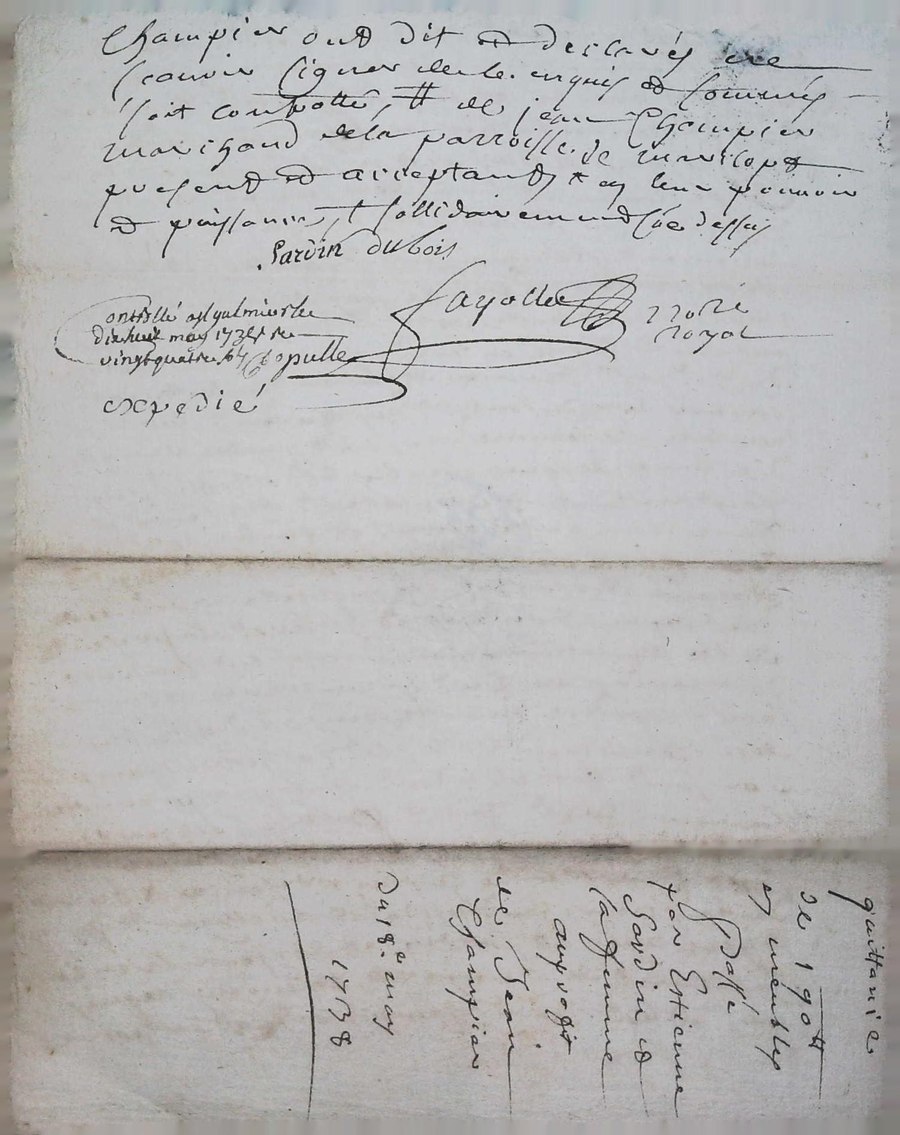 Champier ont dit et desclarés ne
scavoir signer de le enquis et sommés
soit controllé, # de jean Champier
marchand de la parroisse de
present et acceptant, * en leur pouvoir
et puissance, + sollidairement Cÿ dessus
Sardin dubois
Fayolle nore
royal
Controllé a
dixhuit may 1738 re
vingt quatre sols Chapulle
expedié
quittance
de 190#
et meubles
Passé
par Estienne
Sardin et
sa femme
au profit
de Jean
Champier
Du 18e may
1738